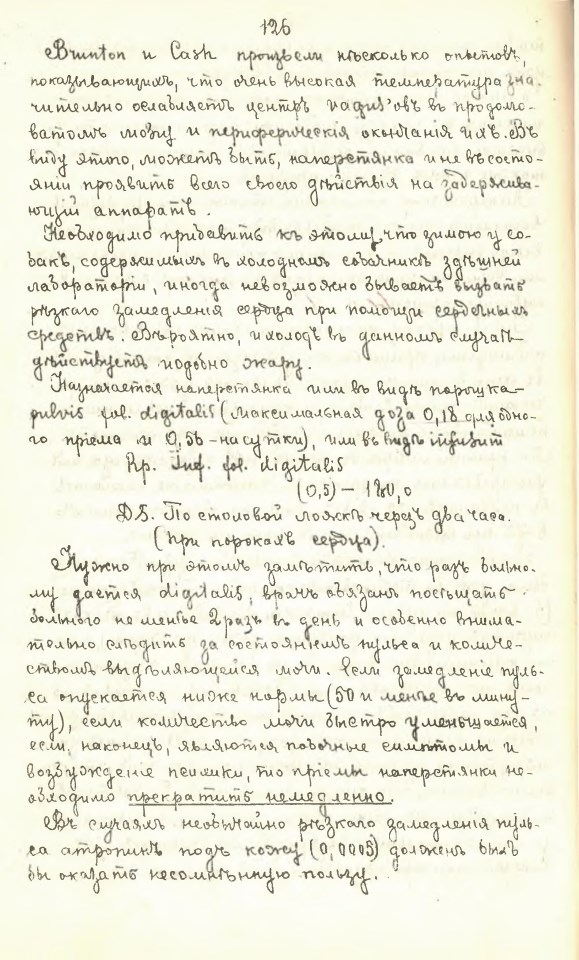 126
Brunton и Cash произвели нѣсколько опытовъ,
показывающихъ, что очень высокая температура зна-
чительно ослабляетъ центръ vagus'овъ въ продолго-
ватомъ мозгу и периферическія окончанія ихъ. Въ
виду этого, можетъ быть, наперстянка и не въ состо-
яніи проявить всего своего дѣйствія на задержива-
ющій аппаратъ.
Необходимо прибавить къ этому, что зимою у со-
бакъ, содержимыхъ въ холодномъ собачникѣ здѣшней
лабораторіи, иногда невозможно бываетъ вызвать
рѣзкаго замедленія сердца при помощи сердечныхъ
средствъ. Вѣроятно, и холодъ въ данномъ случаѣ
дѣйствуетъ подобно жару.
Назначается наперстянка или въ видѣ порошка
pulvis fol. digitalis (максимальная доза 0,18 для одно-
го пріема и 0,56 - на сутки), или въ видѣ infusum
Rp. Inf. fol. digitalis
(0,5) – 180,0
DS. По столовой ложкѣ черезъ два часа.
(При порокахъ сердца).
Нужно при этомъ замѣтить, что разъ больно-
му дается digitalis, врачъ обязанъ посѣщать
больного не менѣе 2 разъ въ день и особенно внима-
тельно слѣдить за состояніемъ пульса и количе-
ствомъ выдѣляющейся мочи. Если замедленіе пуль-
са опускается ниже нормы (50 и менѣе въ мину-
ту), если количество мочи быстро уменьшается,
если, наконецъ, являются побочные симптомы и
возбужденіе психики, то пріемы наперстянки не-
обходимо прекратить немедленно.
Въ случаяхъ необычайно рѣзкаго замедленія пуль-
са атропинъ подъ кожу (0,0005) долженъ былъ
бы оказать несомнѣнную пользу.